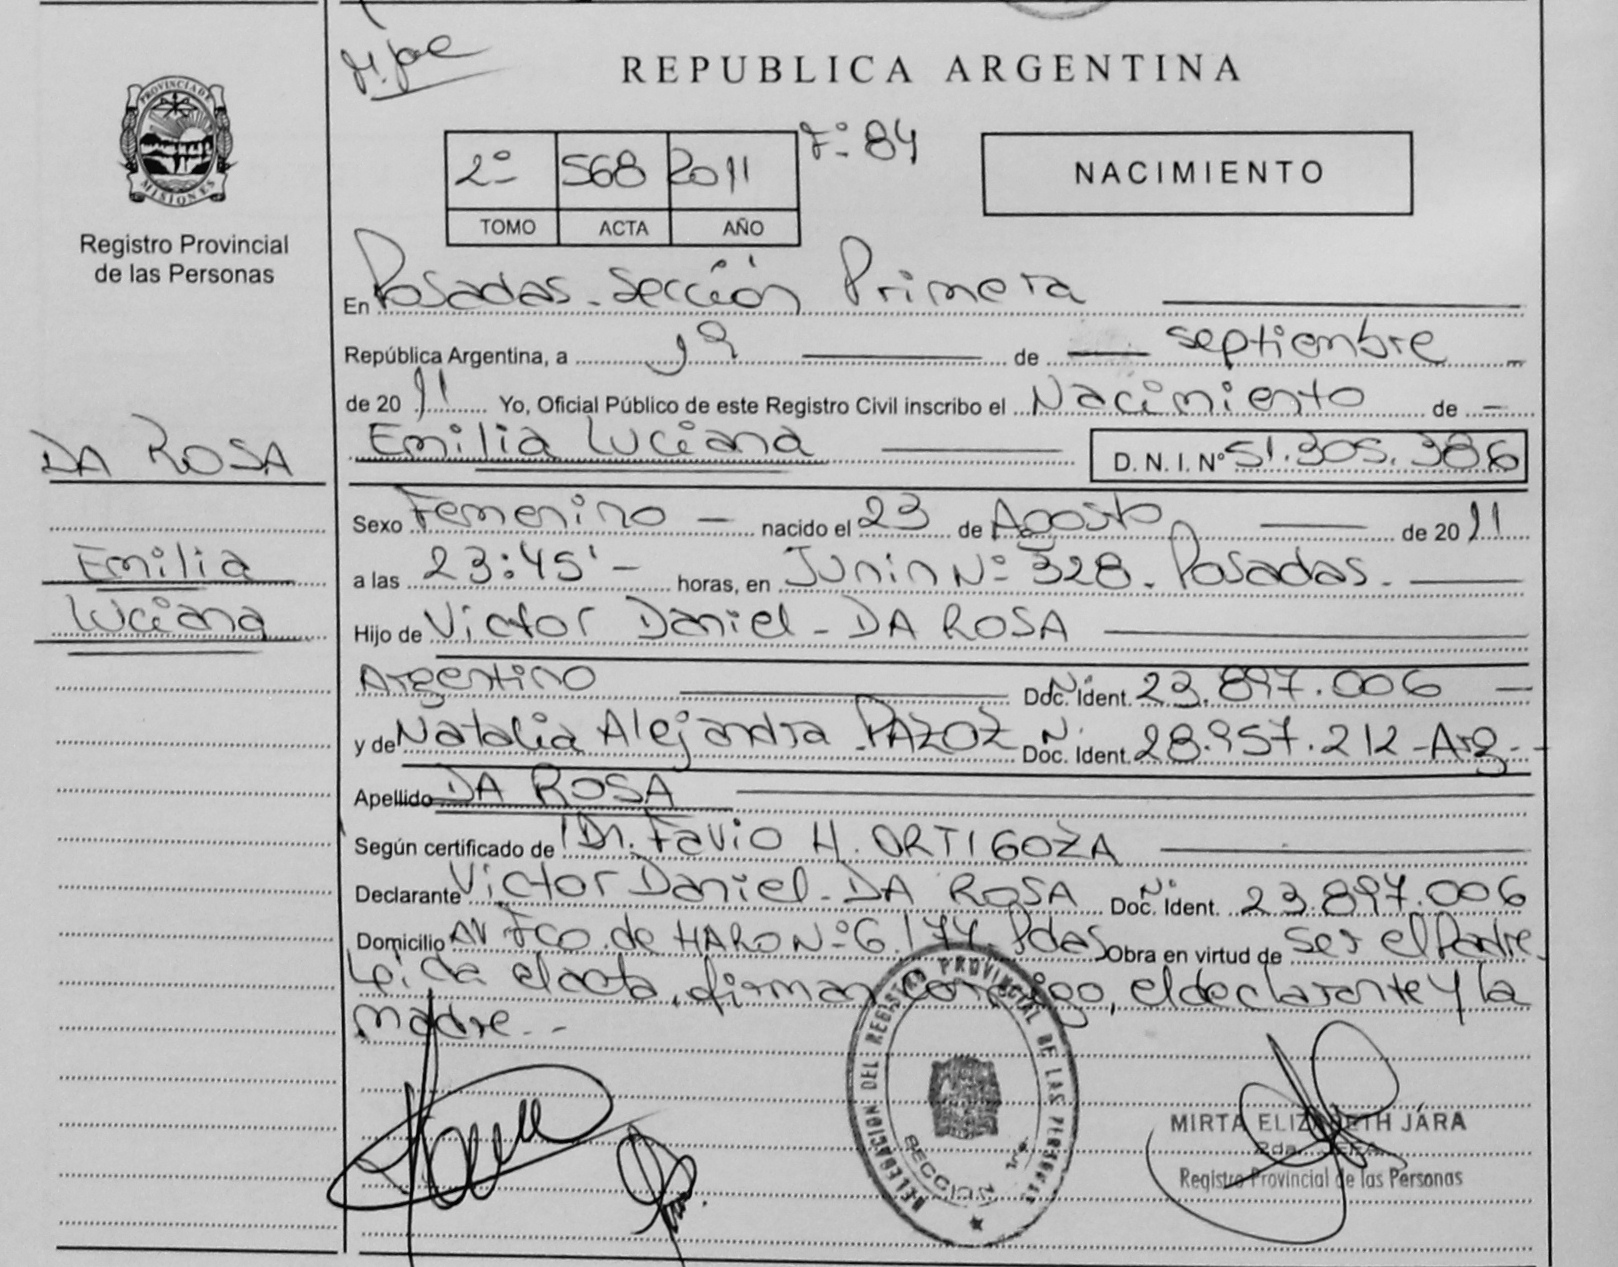 REPUBLICA ARGENTINA
PROVINCIA DE
MISIONES
Registro Provincial
de las Personas
2º 568 2011 Fº 84
TOMO ACTA AÑO
NACIMIENTO
En Posadas - Sección Primera
República Argentina, a de septiembre
de 2011 Yo, Oficial Público de este Registro Civil inscribo el Nacimiento de -
Emilia Luciana D. N. I. Nº 51.305.386
DA ROSA
Emilia
Luciana
Sexo Femenino - nacido el 23 de Agosto de 2011
a las 23:45' - horas, en Junin Nº 328 - Posadas -
Hijo de Victor Daniel - DA ROSA
Argentino Doc. N. Ident. 23.897.006 -
y de Natalia Alejandra PAZOZ Doc. N. Ident. 28.957.212 - Arg. -
Apellido DA ROSA
Según certificado de Dr. Favio H. ORTIGOZA
Declarante Victor Daniel - DA ROSA Doc. N. Ident. 23.897.006
Domicilio AV FCO. de HARO Nº 6.177 - Pdas Obra en virtud de ser el Padre -
Leida el acta, firman conmigo, el declarante y la
madre. - -
DELEGACION DEL REGISTRO PROVINCIAL DE LAS PERSONAS
SECCION 1ra.
MIRTA ELIZABETH JARA
Registro Provincial de las Personas